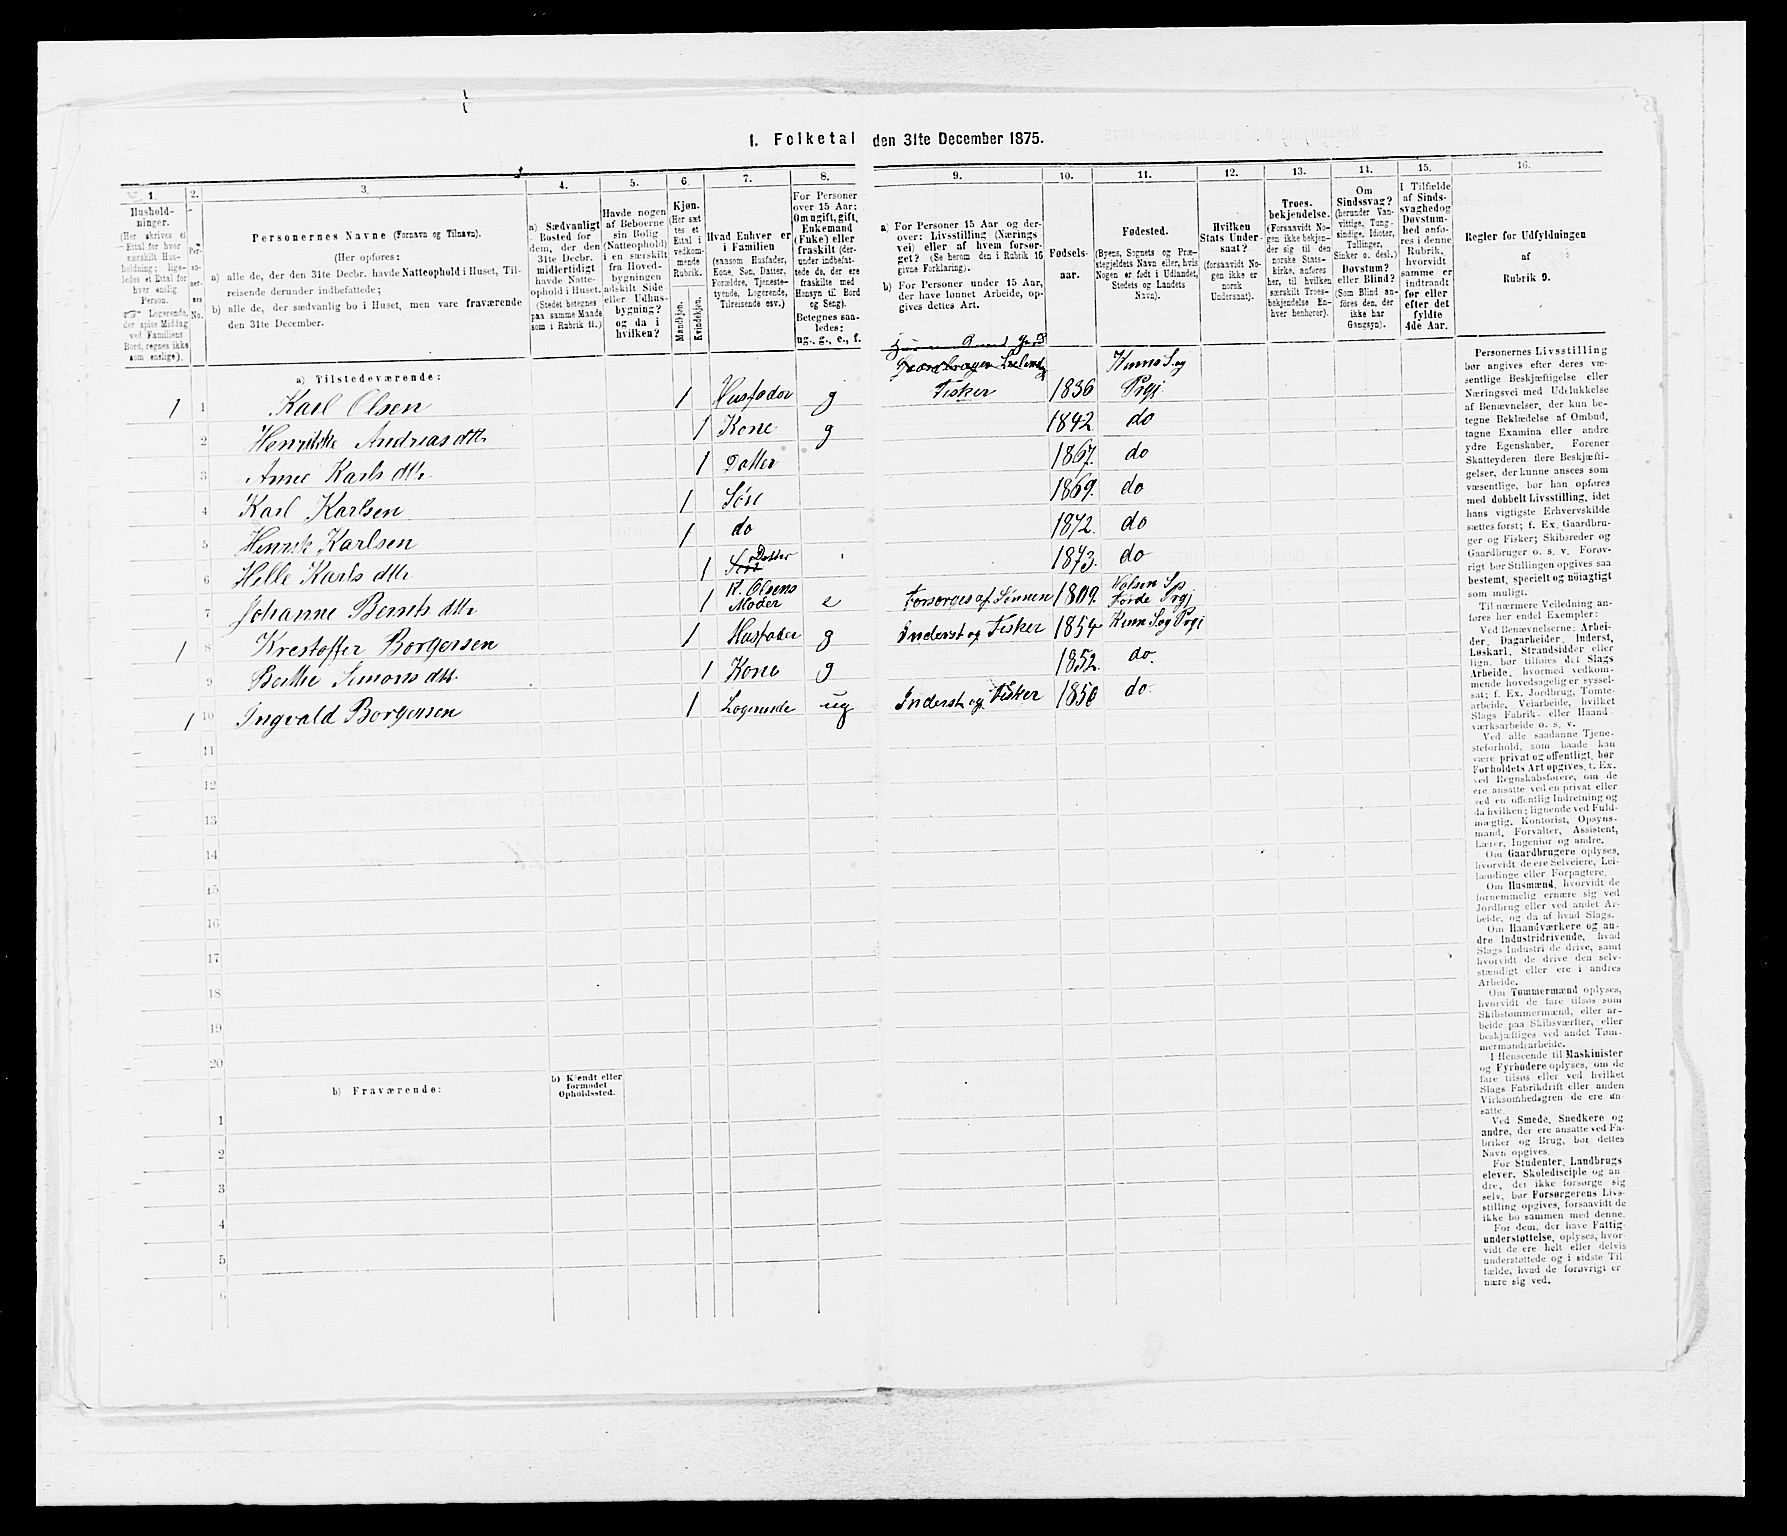 1. Folketal den 31te December 1875.
1.
Husholdninger.
(Her skrives et Ettal for hver særskilt Husholdning; ligeledes et Ettal for hver enslig Person.
☞ Logerende, der spise Middag ved Familiens Bord, regnes ikke som enslige).
2.
Personernes No.
3.
Personernes Navne (Fornavn og Tilnavn).
(Her opføres:
a) alle de, der den 31te Decbr. havde Natteophold i Huset, Tilreisende derunder indbefattede;
b) alle de, der sædvanlig bo i Huset, men vare fraværende den 31te December.
4.
a) Sædvanligt Bosted for dem, der den 31te Decbr. midlertidigt havde Natteophold i Huset.
(Stedet betegnes paa samme Maade som i Rubrik 11.)
5.
Havde nogen af Beboerne sin Bolig (Natteophold) i en særskilt fra Hovedbygningen adskilt Side eller Udhusbygning? og da i hvilken?
6.
Kjøn.
(Her sættes et Ettal i vedkommende Rubrik.
Mandkjøn.
Kvindekjøn.
7.
Hvad Enhver er i Familien
(saasom Husfader, Kone, Søn, Datter, Forældre, Tjenestetyende, Logerende, Tilreisende osv.)
8.
For Personer over 15 Aar: Om ugift, gift, Enkemand (Enke) eller fraskilt (derunder indbefattede de, der ere fraskilte med Hensyn til Bord og Seng).
Betegnes saaledes: ug., g., e., f.
9.
a) For Personer 15 Aar og derover: Livsstilling (Næringsvei) eller af hvem forsørget? (Se herom den i Rubrik 16 givne Forklaring).
b) For Personer under 15 Aar, der have lønnet Arbeide, opgives dettes Art.
10.
Fødselsaar.
11.
Fødested.
(Byens, Sognets og Præstegjeldets Navn eller, hvis Nogen er født i Udlandet, Stedets og Landets Navn).
12.
Hvilken Stats Undersaat?
(forsaavidt Nogen ikke er norsk Undersaat).
13.
Troesbekjendelse.
(Forsaavidt Nogen ikke bekjender sig til den norske Statskirke, anføres her, til hvilken særskilt Troesbekjendelse Enhver henhører).
14.
Om Sindssvag? (herunder Vanvittige, Tungsindige, Idioter, Tullinger, Sinker o. desl.) Døvstum? eller Blind? (Som Blind anføres den, der ikke har Gangsyn).
15.
I Tilfælde af Sindssvaghed og Døvstumhed anføres i denne Rubrik, hvorvidt samme er indtraadt før eller efter det fyldte 4de Aar.
16.
Regler for Udfyldningen
af
Rubrik 9.
a) Tilstedeværende:
1 1 Karl Olsen 1 Husfader g Fisker 1836 Kinns Sog Prgj
2 Henrikke Andreasdttr 1 Kone g 1842 do
3 Anne Karlsdttr 1 Datter 1867. do
4 Karl Karlsen 1 Søn 1869. do
5 Henrik Karlsen 1 do 1872. do
6 Helle Karlsdttr 1 Datter 1873. do
7 Johanne Berntsdttr 1 K. Olsens Moder e Forsørges af Sønnen 1809. Holsen Sg Førde Prgj
1 8 Krestoffer Borgersen 1 Husfader g Inderst og Fisker 1854 Kinn Sog Prgj
9 Berthe Simonsdttr. 1 Kone g 1852. do.
1 10 Ingvald Borgersen 1 Logerende ug Inderst og Fisker 1850 do.
11
12
13
14
15
16
17
18
19
20
b) Fraværende:
b) Kjendt eller formodet Opholdssted.
1
2
3
4
5
6
Personernes Livsstilling
bør angives efter deres væ-
sentlige Beskjæftigelse eller
Næringsvei med Udelukkelse
af Benævnelser, der kun be-
tegne Beklædelse af Ombud,
tagne Examina eller andre
ydre Egenskaber. Forener
Skatteyderen flere Beskjæfti-
gelser, der kunne ansees som
væsentlige, bør han opføres
med dobbelt Livsstilling, idet
hans vigtigste Erhvervskilde
sættes først; f. Ex. Gaardbru-
ger og Fisker; Skibsreder og
Gaardbruger o. s. v. Forøv-
rigt bør Stillingen opgives saa
bestemt, specielt og nöiagtigt
som muligt.
Til nærmere Veiledning an-
føres her endel Exempler:
Ved Benævnelserne: Arbei-
der, Dagarbeider, Inderst,
Løskarl, Strandsidder eller
lign. bør tilføies det Slags
Arbeide, hvormed vedkom-
mende hovedsagelig er syssel-
sat; f. Ex. Jordbrug, Tomte-
arbeide, Veiarbeide, hvilket
Slags Fabrik- eller Haand-
værksarbeide o. s. v.
Ved alle saadanne Tjene-
steforhold, som baade kan
være privat og offentligt, bør
Forholdets Art opgives, t. Ex.
ved Regnskabsførere, om de
ere ansatte ved en privat eller
ved en offentlig Indretning og
da hvilken; lignende ved Fuld-
mægtig, Kontorist, Opsyns-
mand, Forvalter, Assistent,
Lærer, Ingeniør og andre.
Om Gaardbrugere oplyses,
hvorvidt de ere Selveiere, Lei-
lændinge eller Forpagtere.
Om Husmænd, hvorvidt de
fornemmelig ernære sig ved
Jordbrug eller ved andet Ar-
beide, og da af hvad Slags.
Om Haandværkere og an-
dre Industridrivende, hvad
Slags Industri de drive, samt
hvorvidt de drive den selv-
stændigt eller ere i andres
Arbeide.
Om Tømmermænd oplyses,
hvorvidt de fare tilsøs som
Skibstømmermænd, eller ar-
beide paa Skibsværfter, eller
beskjæftiges ved andet Tøm-
mermandsarbeide.
I Henseende til Maskinister
og Fyrbødere oplyses, om de
fare tilsøs eller ved hvilket
Slags Fabrikdrift eller anden
Virksomhedsgren de ere an-
satte.
Ved Smede, Snedkere og
andre, der ere ansatte ved Fa-
briker og Brug, bør dettes
Navn opgives.
For Studenter, Landbrugs-
elever, Skoledisciple og an-
dre, der ikke forsørge sig
selv, bør Forsørgerens Livs-
stilling opgives, forsaavidt de
ikke bo sammen med denne.
For dem, der have Fattig-
understøttelse, oplyses, hvor-
vidt de ere helt eller delvis
understøttede og i sidste Til-
fælde, hvad de forøvrigt er-
nære sig ved.